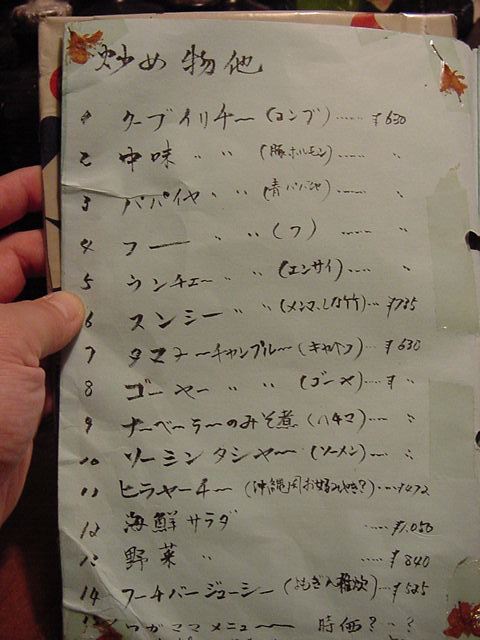 炒め物他
1 クーブイリチー (コンブ) ‥‥ ¥630
2 中味 〃 〃 (豚ホルモン) ‥‥ 〃
3 パパイヤ 〃 〃 (青パパイヤ) ‥‥ 〃
4 フー 〃 〃 (フ) ‥‥ 〃
5 ウンチェー 〃 〃 (エンサイ) ‥‥ 〃
6 スンシー 〃 〃 (メンマ、しな竹) ‥ ¥735
7 タマナーチャンプルー (キャベツ) ‥ ¥630
8 ゴーヤー 〃 〃 (ゴーヤ) ‥‥ ¥ 〃
9 ナーベーラーのみそ煮 (ヘチマ) ‥‥ 〃
10 ソーミンタシヤー (ソーメン) ‥‥ 〃
11 ヒラヤーチー (沖縄風お好みやき?) ‥
12 海鮮サラダ ‥‥ ¥1,050
13 野菜 〃 ‥‥ ¥840
14 フーチバージューシー (よもぎ入雑炊) ‥ ¥525
ワガママメニュー 時価? ?